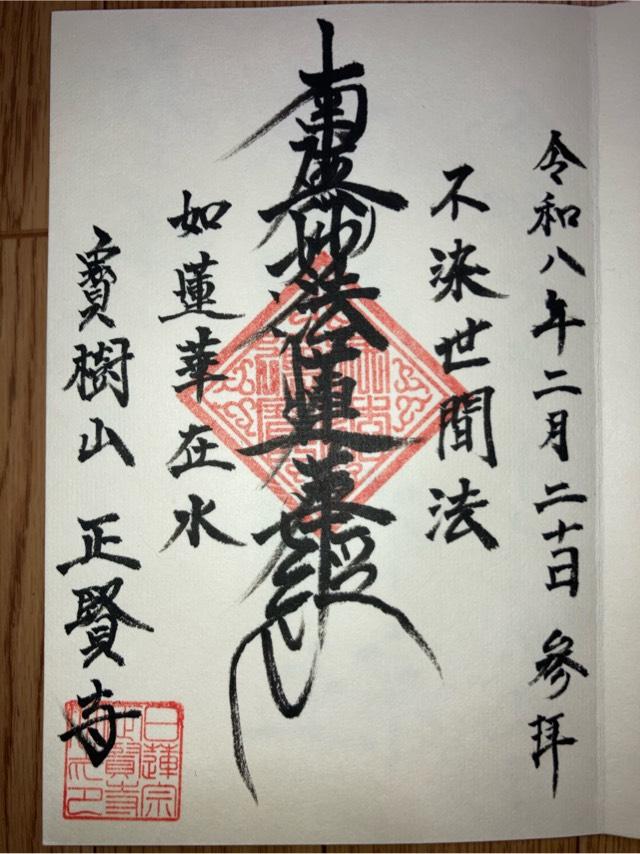 令和八年二月二十日 参拜
不染世間法
南無妙法蓮華経
如蓮華在水
寶樹山 正賢寺
日蓮宗
正賢寺